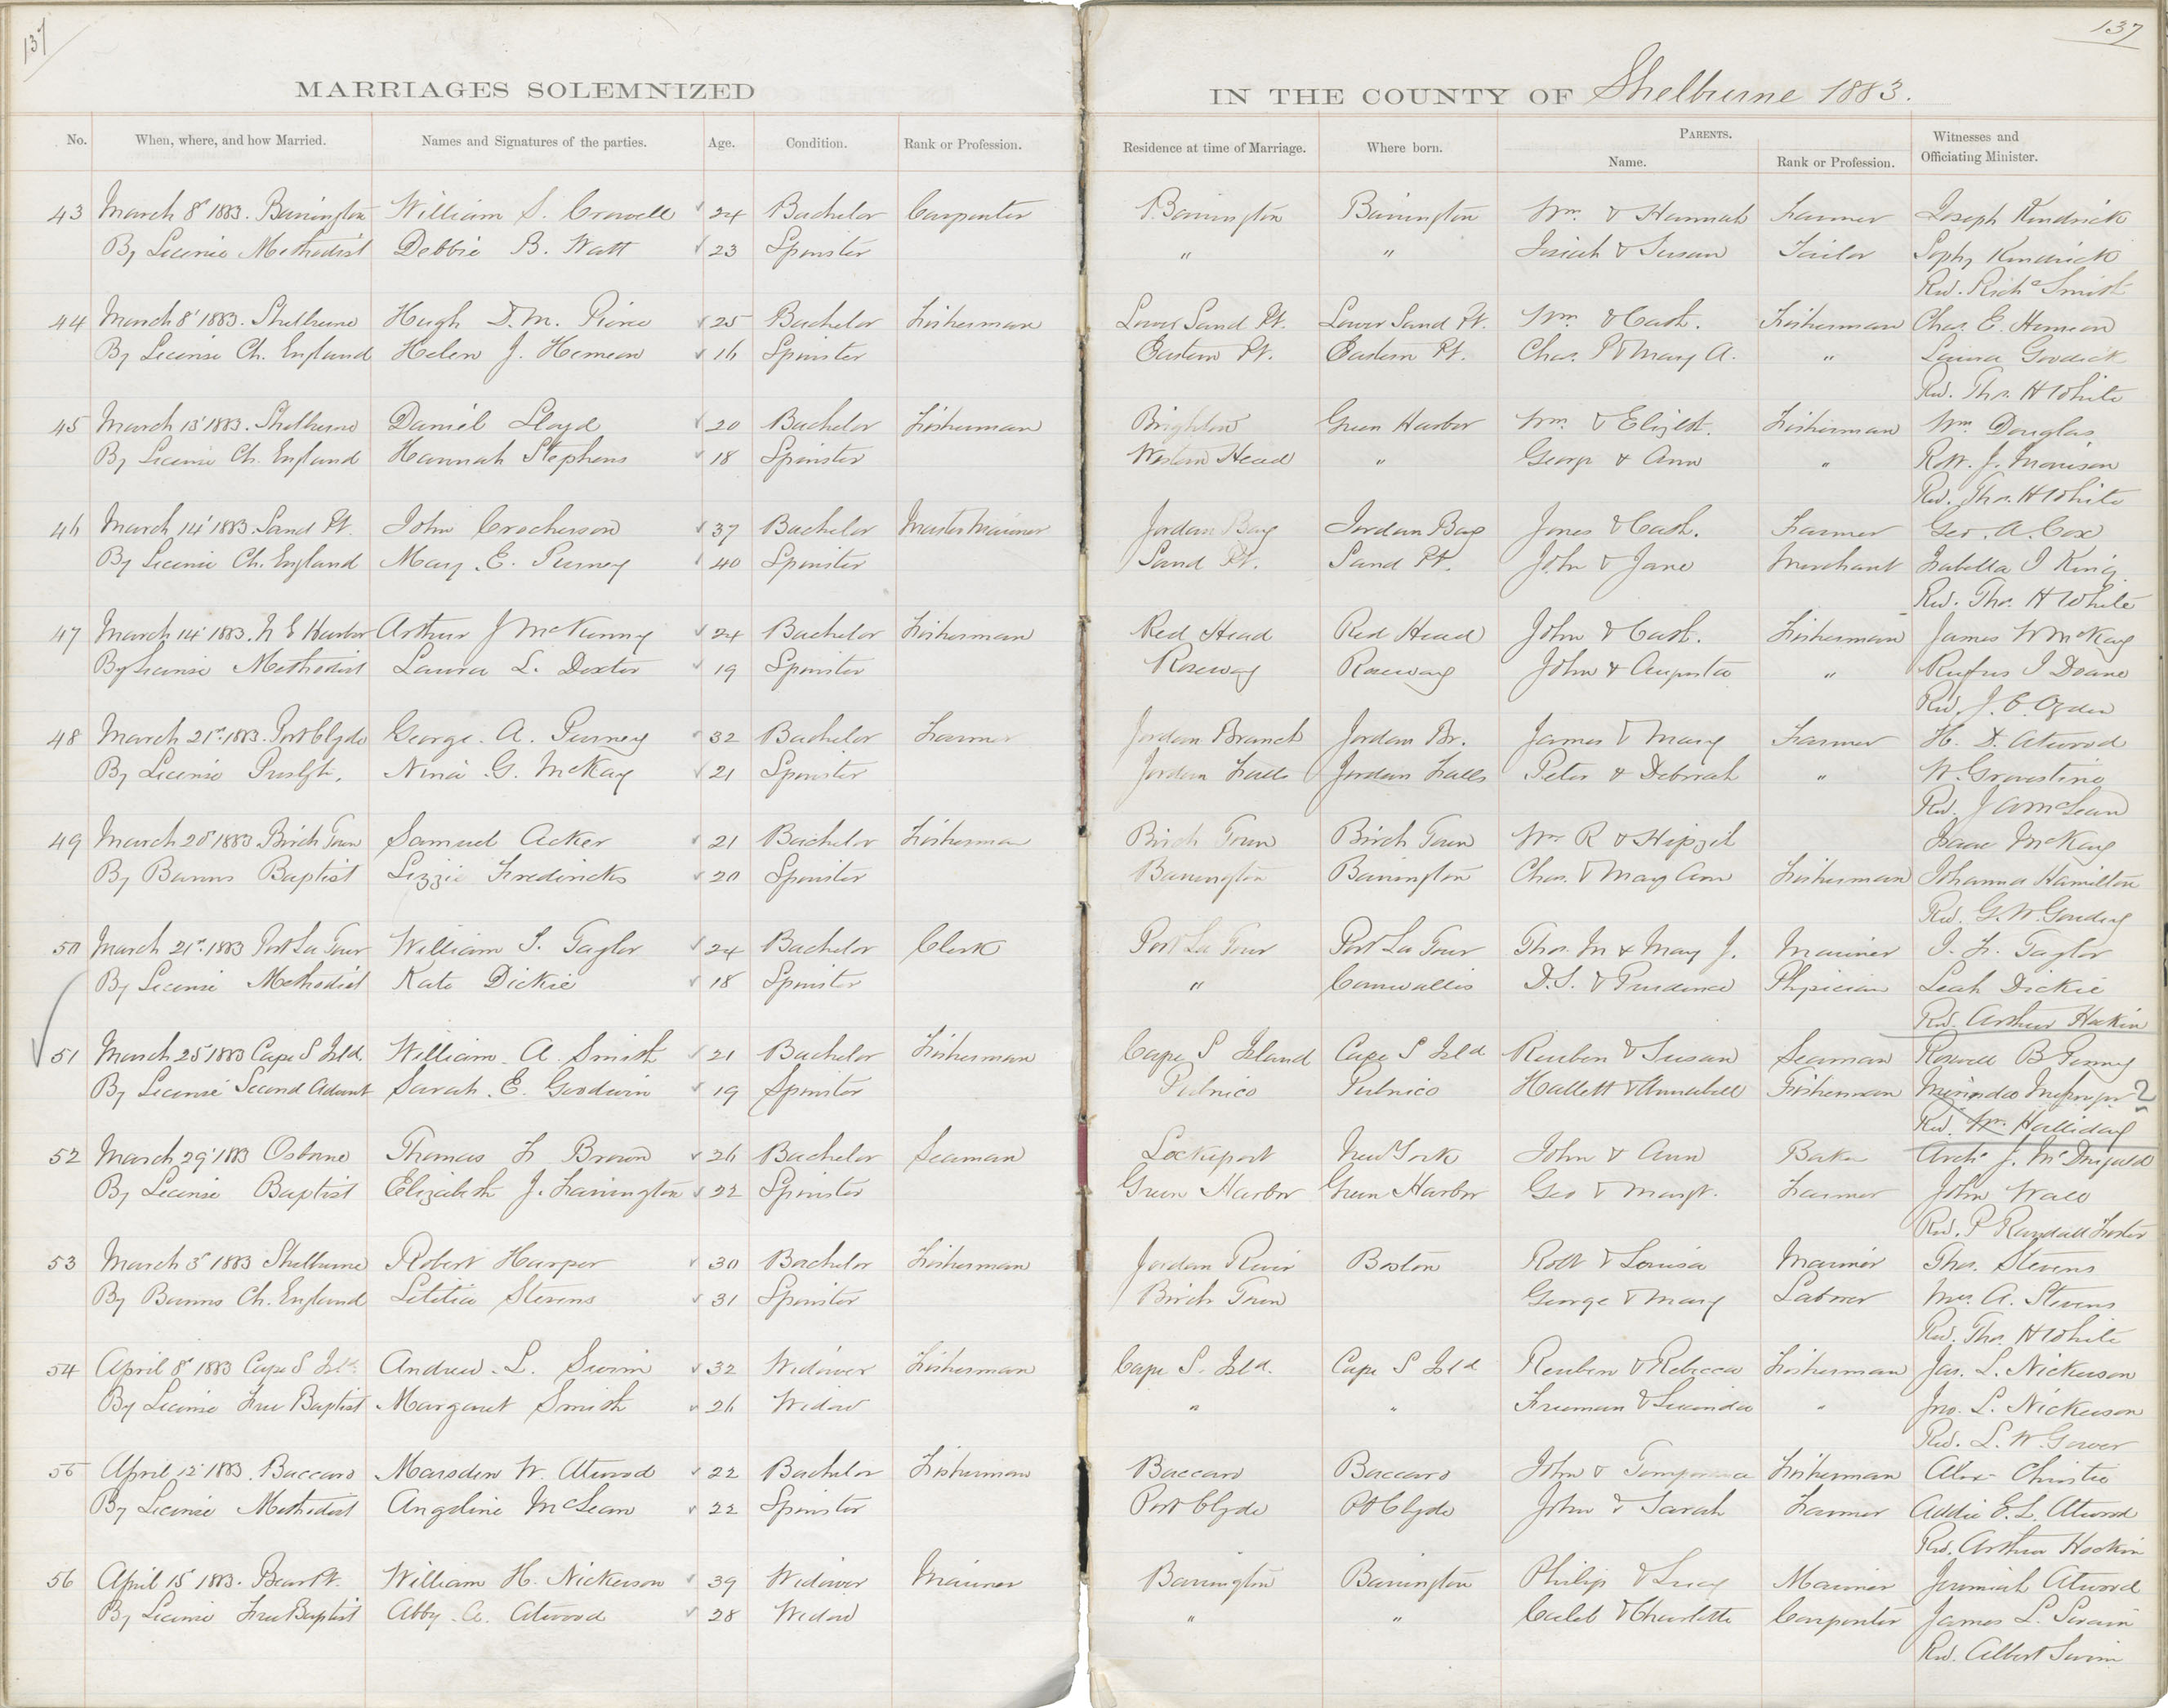 137
137
MARRIAGES SOLEMNIZED IN THE COUNTY OF Shelburne 1883.
No. When, where, and how Married. Names and Signatures of the parties. Age. Condition. Rank or Profession. Residence at time of Marriage. Where born. PARENTS. Name. Rank or Profession. Witnesses and Officiating Minister.
43 March 8th 1883. Barrington William S. Crowell 24 Bachelor Carpenter Barrington Barrington Wm. & Hannah Farmer Joseph Kendrick
By License Methodist Debbie B. Watt 23 Spinster " " Josiah & Susan Tailor Sophy Kendrick
Rev. Richd Smith
44 March 8' 1883. Shelburne Hugh D. M. Pierce 25 Bachelor Fisherman Lower Sand Pt. Lower Sand Pt. Wm & Cath. Fisherman Chas. E. Hemeon
By License Ch. England Helen J. Hemeon 16 Spinster Eastern Pt. Eastern Pt. Chas. P & Mary A. " Laura Goodick
Rev. Tho. H White
45 March 13' 1883. Shelburne Daniel Lloyd 20 Bachelor Fisherman Brighton Green Harbor Wm & Elizbt. Fisherman Wm Douglas
By License Ch. England Hannah Stephens 18 Spinster Western Head " George & Ann " Robt. J. Morrison
Rev. Tho. H White
46 March 14' 1883. Sand Pt. John Crocherson 37 Bachelor Master Mariner Jordan Bay Jordan Bay Jones & Cath. Farmer Geo. A. Cox
By License Ch. England Mary E. Purney 40 Spinster Sand Pt. Sand Pt. John & Jane Merchant Isabella I King
Rev. Tho. H White
47 March 14' 1883. N E Harbor Arthur J McKenney 24 Bachelor Fisherman Red Head Red Head John & Cath. Fisherman James W McKay
By License Methodist Laura L. Dexter 19 Spinster Roseway Roseway John & Augusta " Rufus I Doane
Rev. J. C. Ogden
48 March 21st 1883. Port Clyde George A. Purney 32 Bachelor Farmer Jordan Branch Jordan Br. James & Mary Farmer H. D. Atwood
By License Presbyt. Nina G. McKay 21 Spinster Jordan Falls Jordan Falls Peter & Deborah " W. Gravestine
Rev. J A McLean
49 March 20' 1883 Birch Town Samuel Acker 21 Bachelor Fisherman Birch Town Birch Town Wm R & Hipzil Isaac McKay
By Banns Baptist Lizzie Fredericks 20 Spinster Barrington Barrington Chas. & Mary Ann Fisherman Johanna Hamilton
Rev. G. W. Goudey
50 March 21st 1883 Port La Tour William S. Taylor 24 Bachelor Clerk Port La Tour Port La Tour Tho. M & Mary J. Mariner I. F. Taylor
By License Methodist Kate Dickie 18 Spinster " Cornwallis D. S. & Prudence Physician Leah Dickie
Rev. Arthur Hockin
51 March 25' 1883 Cape S Isld. William A. Smith 21 Bachelor Fisherman Cape S Island Cape S Isld Reuben & Susan Seaman Roswell B Penny
By License Second Advent Sarah E. Goodwin 19 Spinster Pubnico Pubnico Hallett & Annabell Fisherman ?
Rev. Wm. Halliday
52 March 29' 1883 Osborne Thomas H Brown 26 Bachelor Seaman Lockeport New York John & Ann Baker Archd J. McDonald
By License Baptist Elizabeth J. Farrington 22 Spinster Green Harbor Green Harbor Geo & Margt. Farmer John Wall
Rev. P Randall Foster
53 March 3d 1883 Shelburne Robert Harper 30 Bachelor Fisherman Jordan River Boston Robt & Louisa Mariner Thos. Stevens
By Banns Ch. England Letitia Stevens 31 Spinster Birch Town George & Mary Laborer Mrs. A. Stevens
Rev. Tho. H White
54 April 8' 1883 Cape S Isld. Andrew L. Swim 32 Widower Fisherman Cape S. Isld. Cape S Isld Reuben & Rebecca Fisherman Jas. L. Nickerson
By License Free Baptist Margaret Smith 26 Widow " " Freeman & Lucinda " Jno. L. Nickerson
Rev. L. W. Gower
55 April 12' 1883. Baccaro Marsden W. Atwood 22 Bachelor Fisherman Baccaro Baccaro John & Temperance Fisherman Alex Christie
By License Methodist Angeline McLean 22 Spinster Port Clyde Pt Clyde John & Sarah Farmer Addie E. L. Atwood
Rev. Arthur Hockin
56 April 15' 1883. Bear Pt. William H. Nickerson 39 Widower Mariner Barrington Barrington Philip & Lucy Mariner Jeremiah Atwood
By License Free Baptist Abby A. Atwood 28 Widow " " Caleb & Charlotte Carpenter James L. Swain
Rev. Albert Swim